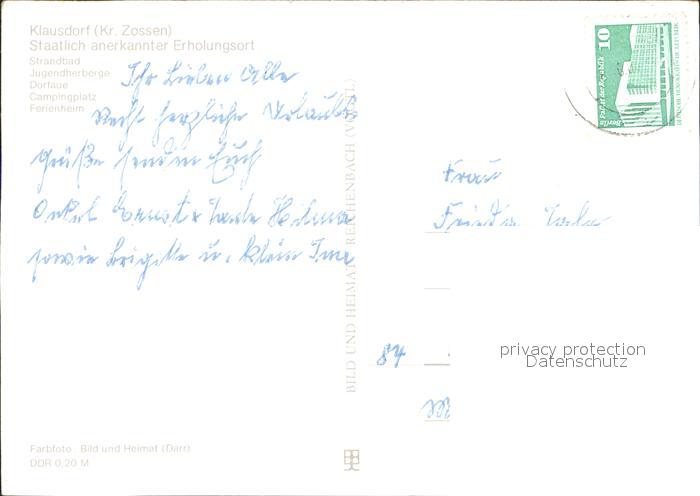 Klausdorf (Kr. Zossen)
Staatlich anerkannter Erholungsort
Strandbad
Jugendherberge
Dorfaue
Campingplatz
Ferienheim
Ihr Lieben Alle
Recht herzliche Urlaubs
grüße senden Euch
Onkel Ernst + Tante Helma
sowie Brigitte u. klein
Frau
Frieda
84
M
BILD UND HEIMAT REICHENBACH (VOGTL)
10
Palast der Republik
Berlin
DEUTSCHE DEMOKRATISCHE REPUBLIK
privacy protection
Datenschutz
Farbfoto: Bild und Heimat (Darr)
DDR 0,20 M